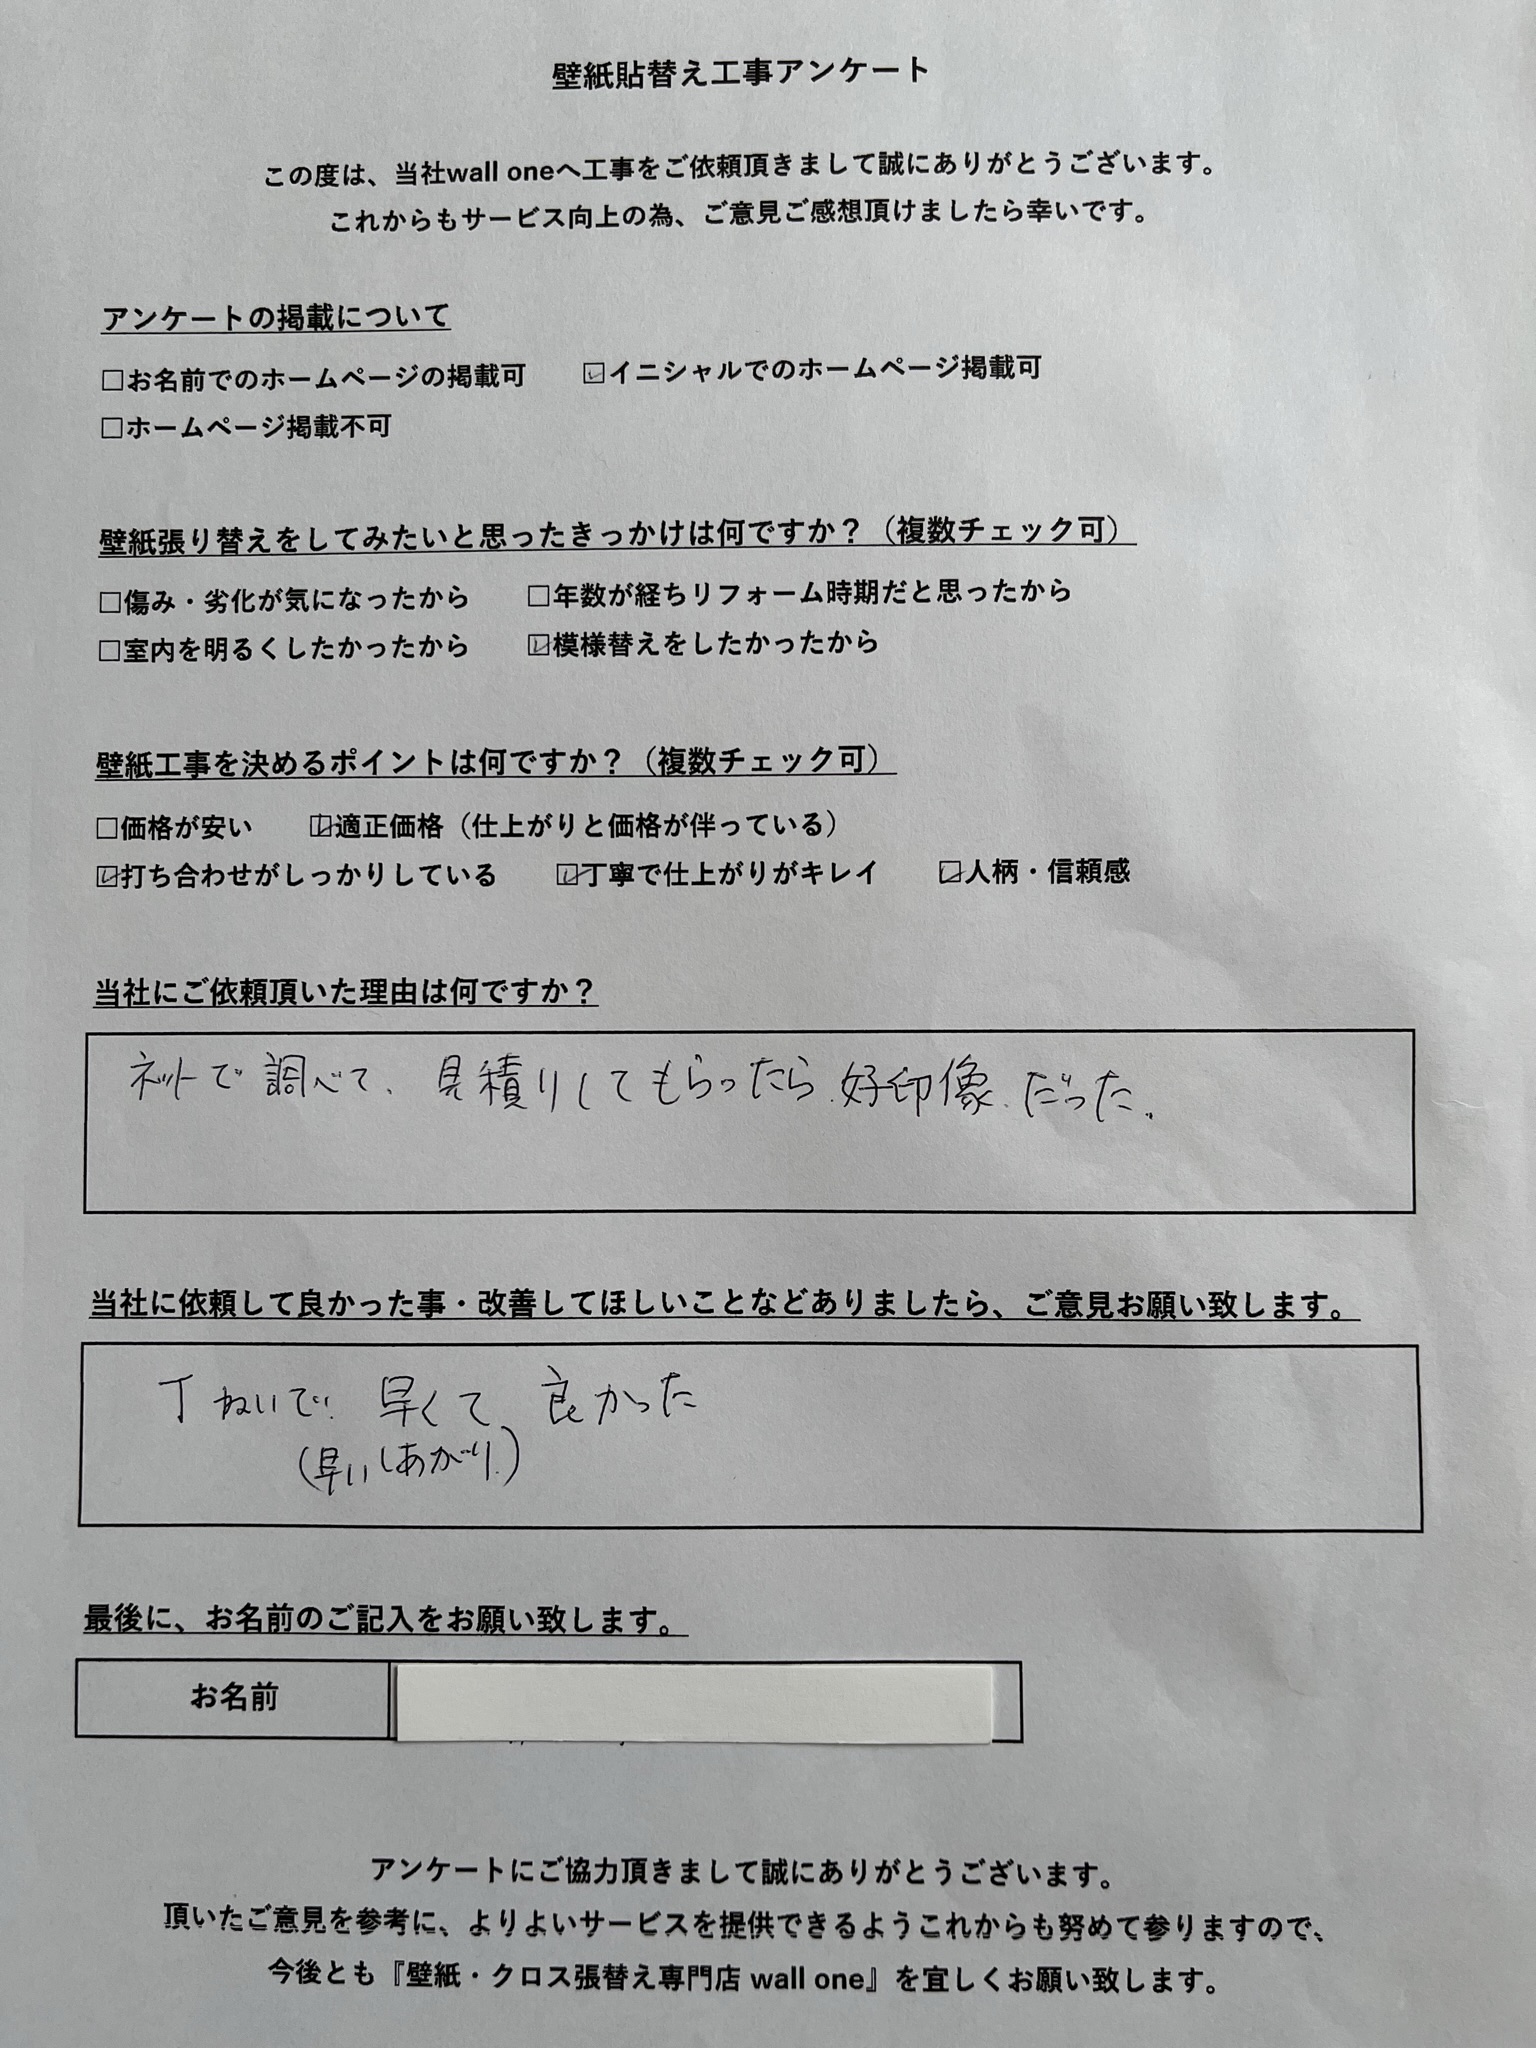 壁紙貼替え工事アンケート
この度は、当社wall oneへ工事をご依頼頂きまして誠にありがとうございます。
これからもサービス向上の為、ご意見ご感想頂けましたら幸いです。
アンケートの掲載について
□お名前でのホームページの掲載可 ☑イニシャルでのホームページ掲載可
□ホームページ掲載不可
壁紙張り替えをしてみたいと思ったきっかけは何ですか？（複数チェック可）
□傷み・劣化が気になったから □年数が経ちリフォーム時期だと思ったから
□室内を明るくしたかったから ☑模様替えをしたかったから
壁紙工事を決めるポイントは何ですか？（複数チェック可）
□価格が安い ☑適正価格（仕上がりと価格が伴っている）
☑打ち合わせがしっかりしている ☑丁寧で仕上がりがキレイ ☑人柄・信頼感
当社にご依頼頂いた理由は何ですか？
ネットで調べて、見積りしてもらったら好印像だった。
当社に依頼して良かった事・改善してほしいことなどありましたら、ご意見お願い致します。
丁ねいで、早くて良かった
（早いしあがり）
最後に、お名前のご記入をお願い致します。
お名前
アンケートにご協力頂きまして誠にありがとうございます。
頂いたご意見を参考に、よりよいサービスを提供できるようこれからも努めて参りますので、
今後とも『壁紙・クロス張替え専門店 wall one』を宜しくお願い致します。